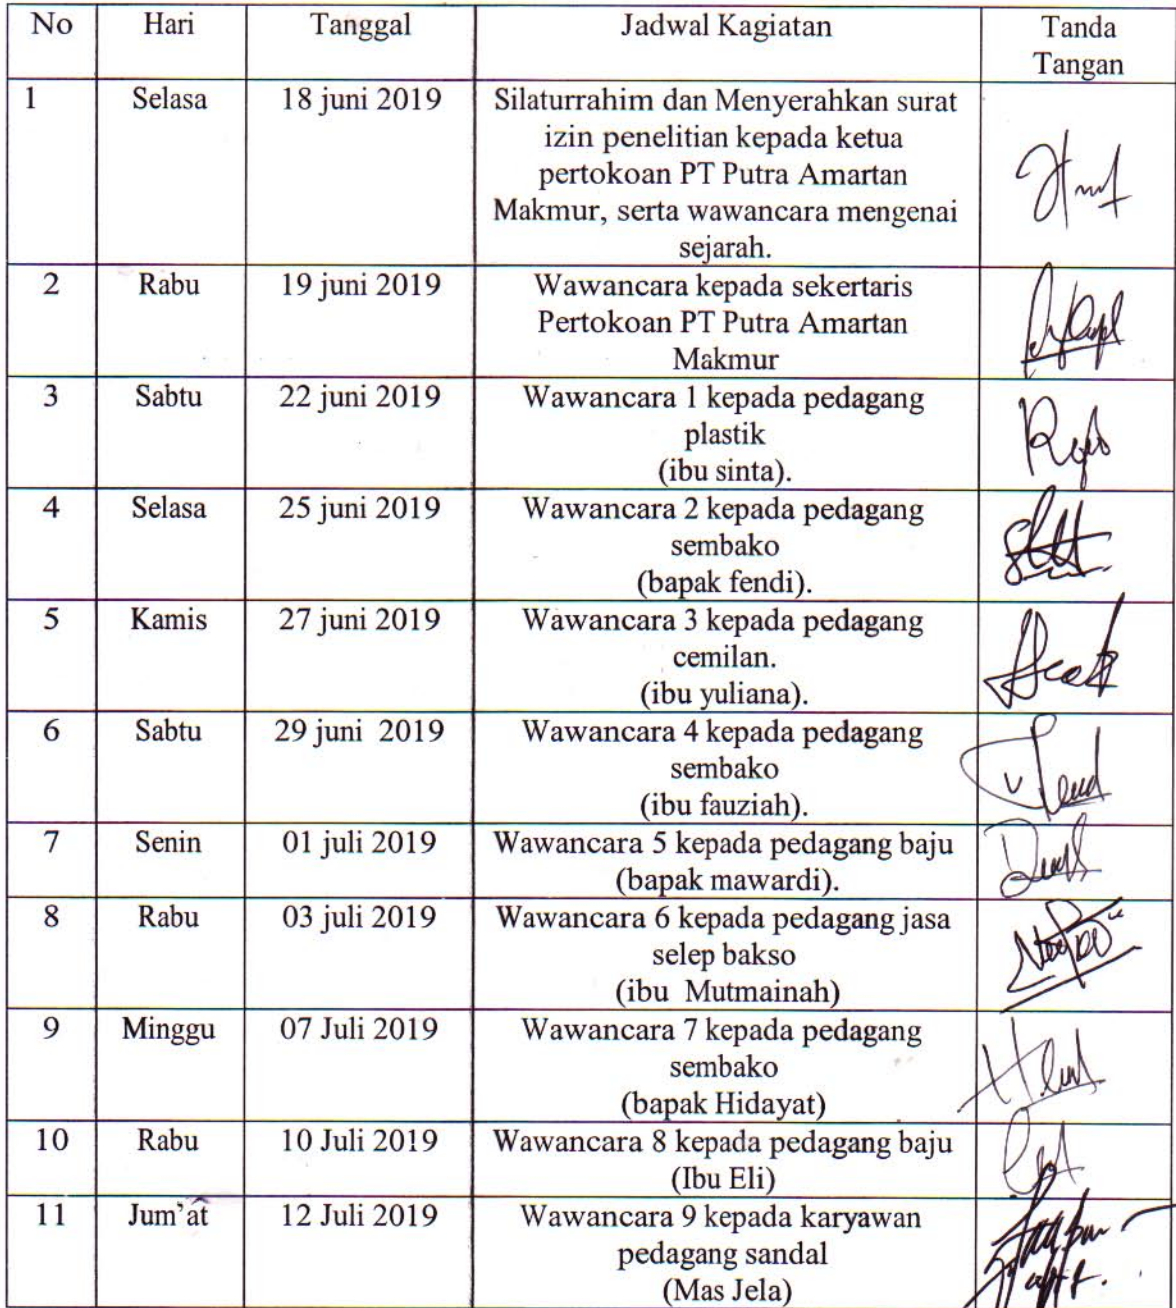 No Hari Tanggal Jadwal Kagiatan Tanda
Tangan
1 Selasa 18 juni 2019 Silaturrahim dan Menyerahkan surat
izin penelitian kepada ketua
pertokoan PT Putra Amartan
Makmur, serta wawancara mengenai
sejarah.
2 Rabu 19 juni 2019 Wawancara kepada sekertaris
Pertokoan PT Putra Amartan
Makmur
3 Sabtu 22 juni 2019 Wawancara 1 kepada pedagang
plastik
(ibu sinta).
4 Selasa 25 juni 2019 Wawancara 2 kepada pedagang
sembako
(bapak fendi).
5 Kamis 27 juni 2019 Wawancara 3 kepada pedagang
cemilan.
(ibu yuliana).
6 Sabtu 29 juni 2019 Wawancara 4 kepada pedagang
sembako
(ibu fauziah).
7 Senin 01 juli 2019 Wawancara 5 kepada pedagang baju
(bapak mawardi).
8 Rabu 03 juli 2019 Wawancara 6 kepada pedagang jasa
selep bakso
(ibu Mutmainah)
9 Minggu 07 Juli 2019 Wawancara 7 kepada pedagang
sembako
(bapak Hidayat)
10 Rabu 10 Juli 2019 Wawancara 8 kepada pedagang baju
(Ibu Eli)
11 Jum'at 12 Juli 2019 Wawancara 9 kepada karyawan
pedagang sandal
(Mas Jela)